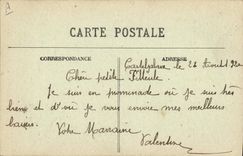 CARTE POSTALE
CORRESPONDANCE
ADRESSE
le 28 Avril 192
Chère petite Filleule
Je suis en promenade où je suis très
bien et d'où je vous envoie mes meilleurs
baisers.
Votre Marraine
Valentine